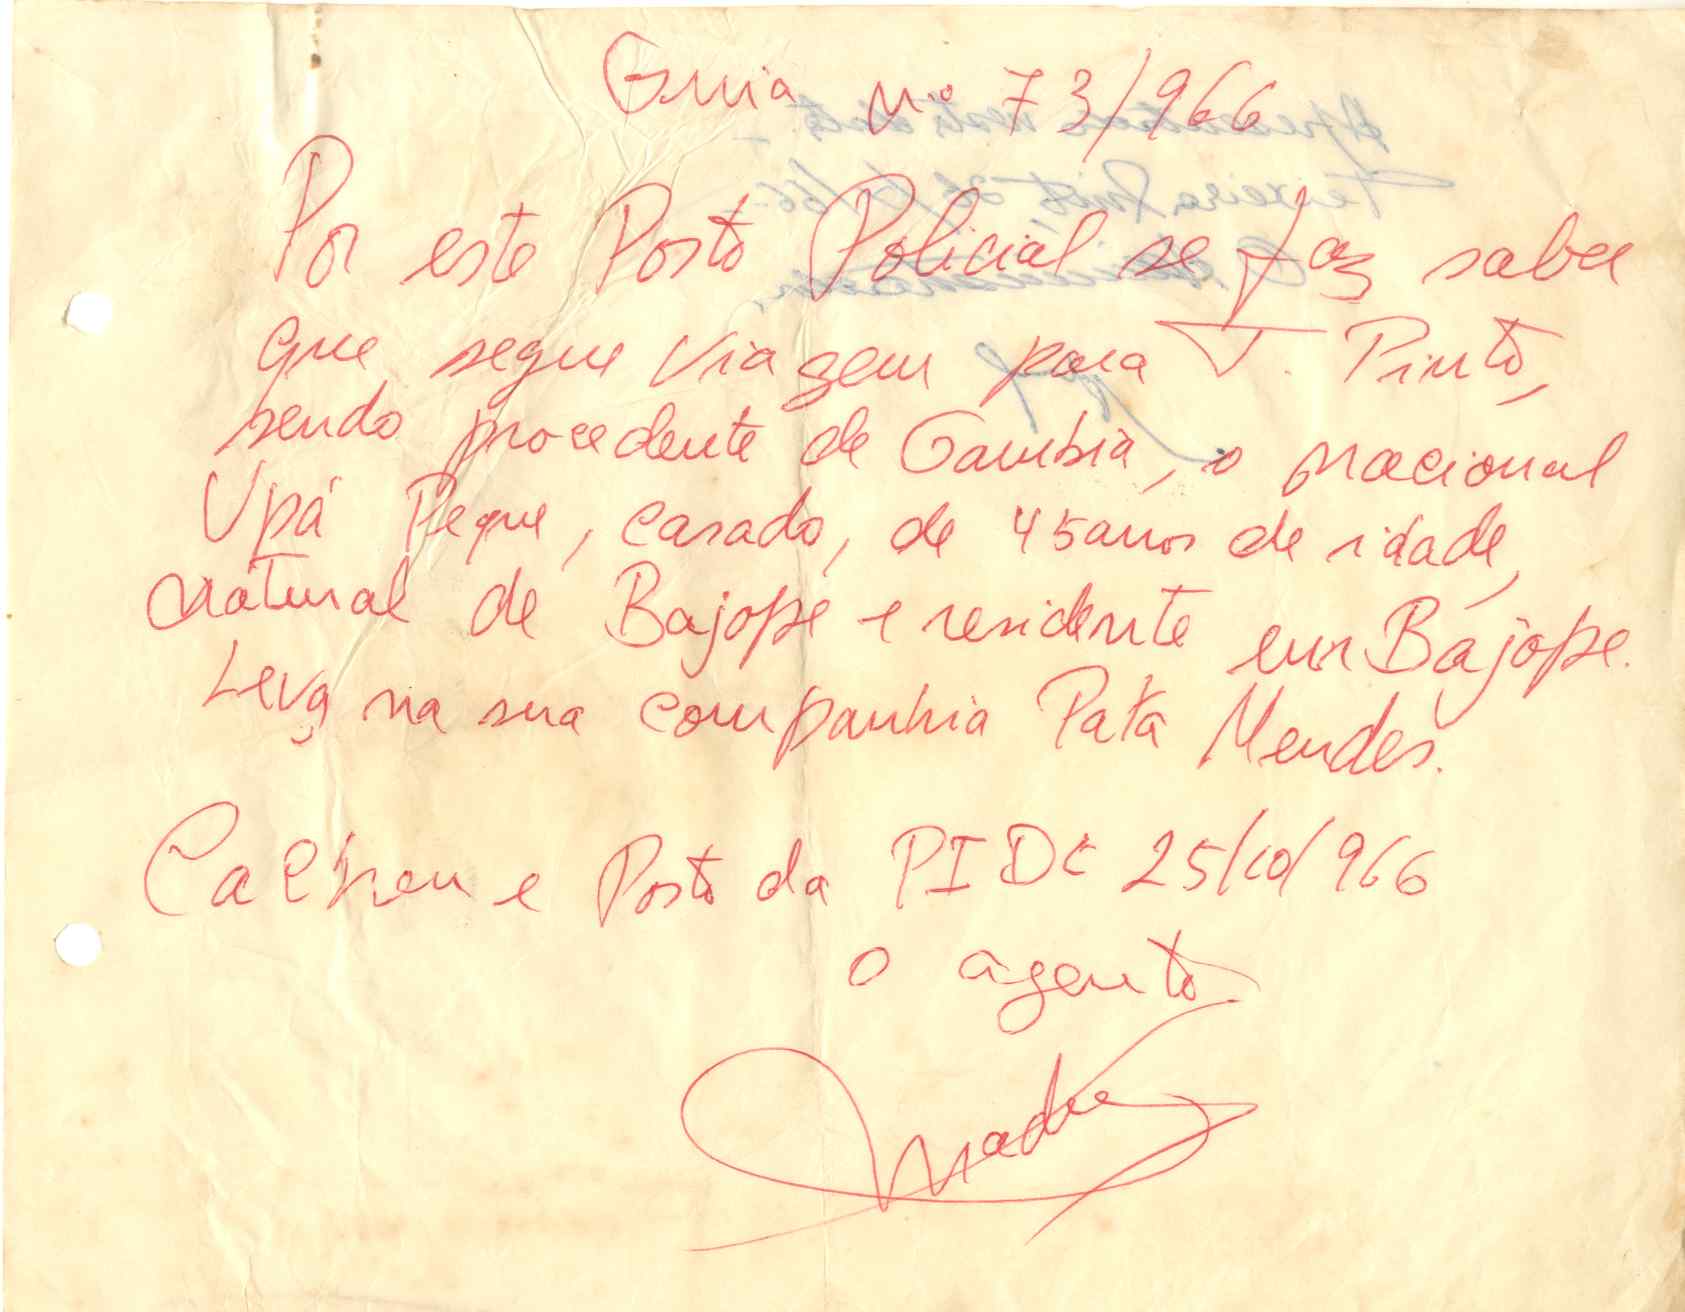 Guia nº 73/966
Por este Posto Policial se faz saber
que segue viagem para T. Pinto,
sendo procedente de Gambia, o nacional
Upá Peque, casado, de 45 anos de idade,
natural de Bajope e residente em Bajope.
Leva na sua companhia Pata Mendes.
Cacheu e Posto da PIDE 25/10/966
o agente